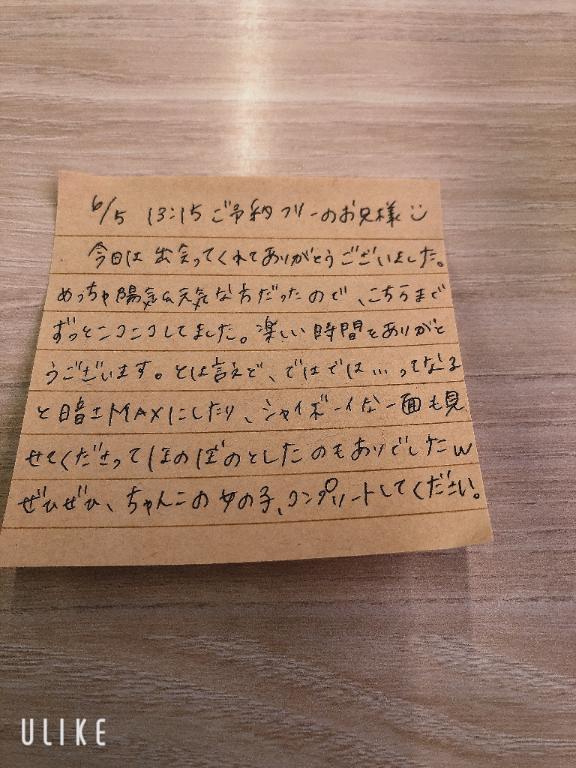 6/5 13:15 ご予約 フリーのお兄様
今日は 出会ってくれてありがとうございました。
めっちゃ陽気&元気な方だったので、こちらまで
ずっとニコニコしてました。楽しい時間をありがと
うございます。とは言えど、ではでは…ってなる
と暗さMAXにしたり、シャイボーイな一面も見
せてくださってほのぼのとしたのもありでしたw
ぜひぜひ、ちゃんこの女の子、コンプリートしてください。
ULIKE